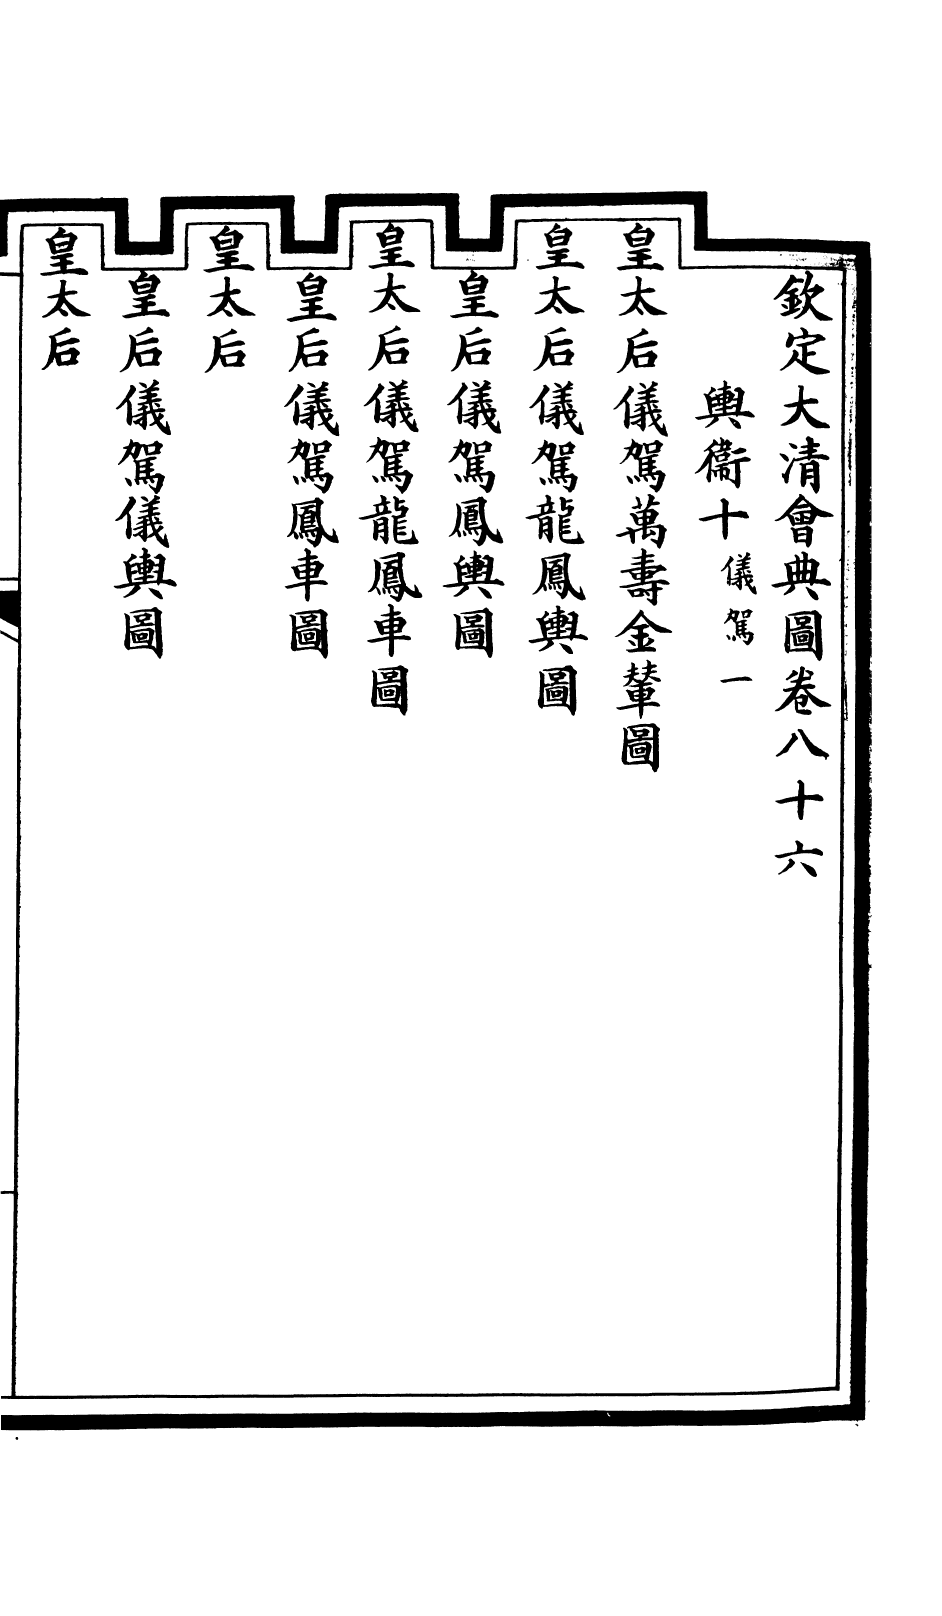 欽定大清會典圖卷八十六
輿衞十儀駕一
皇太后儀駕萬壽金輦圖
皇太后儀駕龍鳳輿圖
皇后儀駕鳳輿圖
皇太后儀駕龍鳳車圖
皇后儀駕鳳車圖
皇太后
皇后儀駕儀輿圖
皇太后